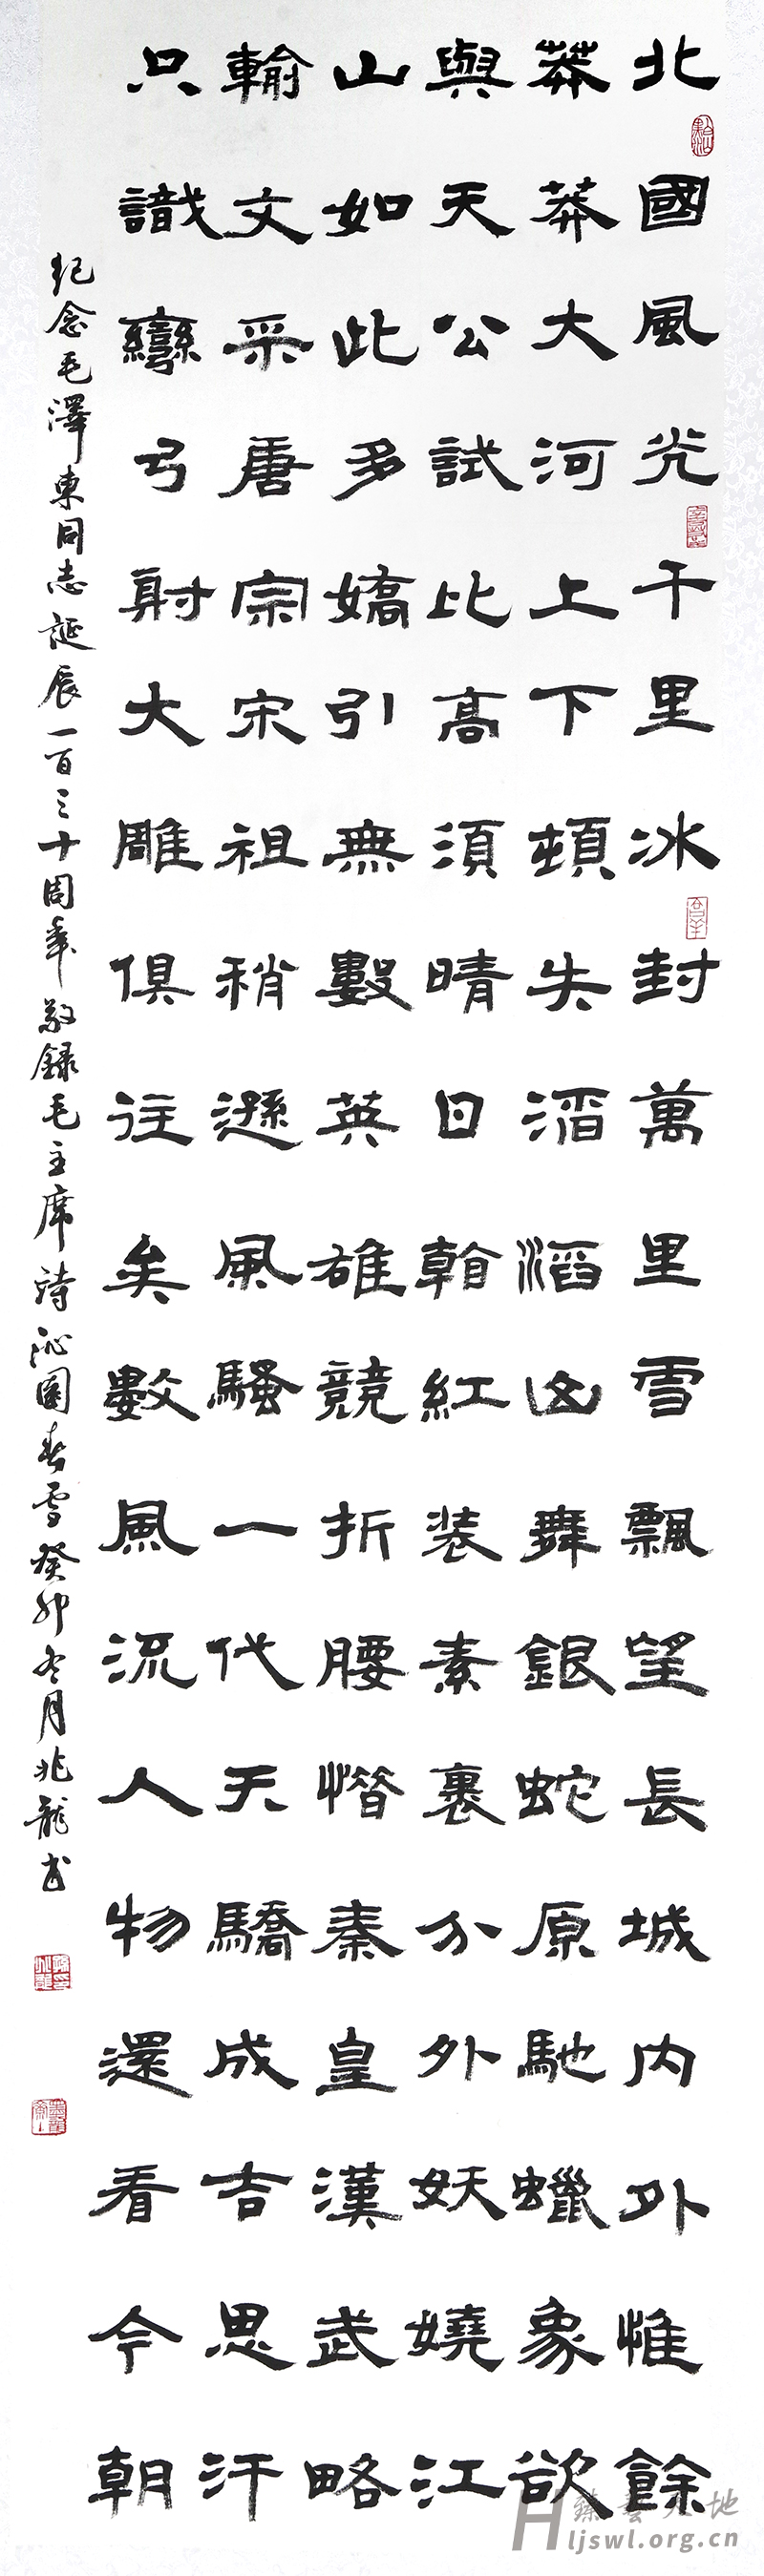 北國風光千里冰封萬里雪飄望長城內外惟餘
莽莽大河上下頓失滔滔山舞銀蛇原馳蠟象欲
與天公試比高須晴日翰紅裝素裹分外妖嬈江
山如此多嬌引無數英雄競折腰惜秦皇漢武略
輸文采唐宗宋祖稍遜風騷一代天驕成吉思汗
只識彎弓射大雕俱往矣數風流人物還看今朝
紀念毛澤東同志誕辰一百三十周年敬錄毛主席詩沁園春雪癸卯冬月兆龍書
臻藝天地
Hljswl.org.cn